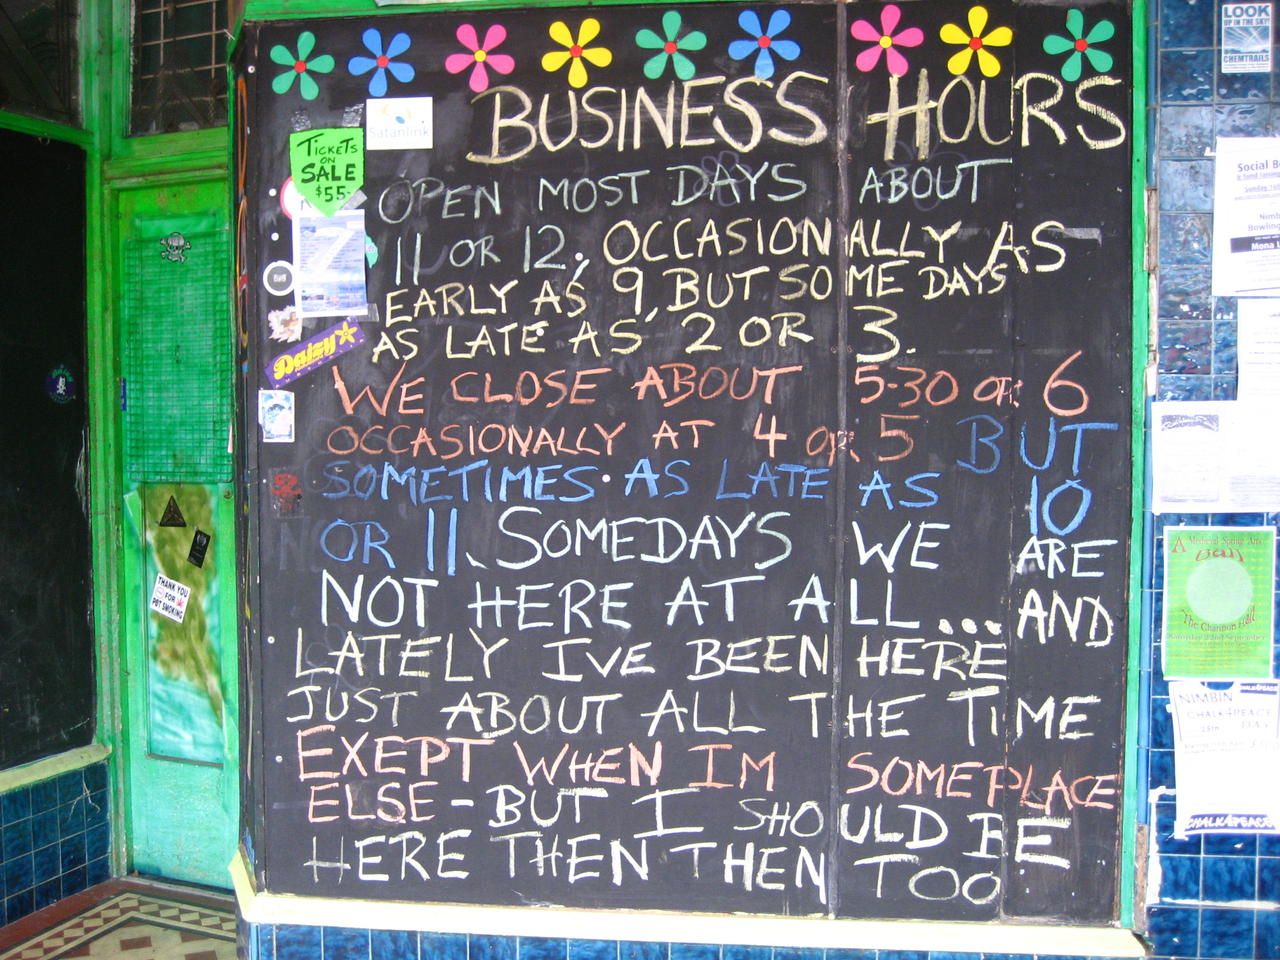 BUSINESS HOURS
OPEN MOST DAYS ABOUT
11 OR 12. OCCASIONALLY AS
EARLY AS 9, BUT SOME DAYS
AS LATE AS 2 OR 3.
WE CLOSE ABOUT 5-30 OR 6
OCCASIONALLY AT 4 OR 5 BUT
SOMETIMES AS LATE AS 10
OR 11. SOMEDAYS WE ARE
NOT HERE AT ALL... AND
LATELY IVE BEEN HERE
JUST ABOUT ALL THE TIME
EXEPT WHEN IM SOMEPLACE
ELSE - BUT I SHOULD BE
HERE THEN THEN TOO
Satanlink
TICKETS
ON
SALE
$55-
Daizy
THANK YOU
FOR
POT SMOKING
LOOK
UP IN THE SKY!
CHEMTRAILS
Social
Nimb
Bowling
Mona
A Medieval Spring Arts
NIMBIN
CHALK4PEACE
DAY
CHALK4PEACE